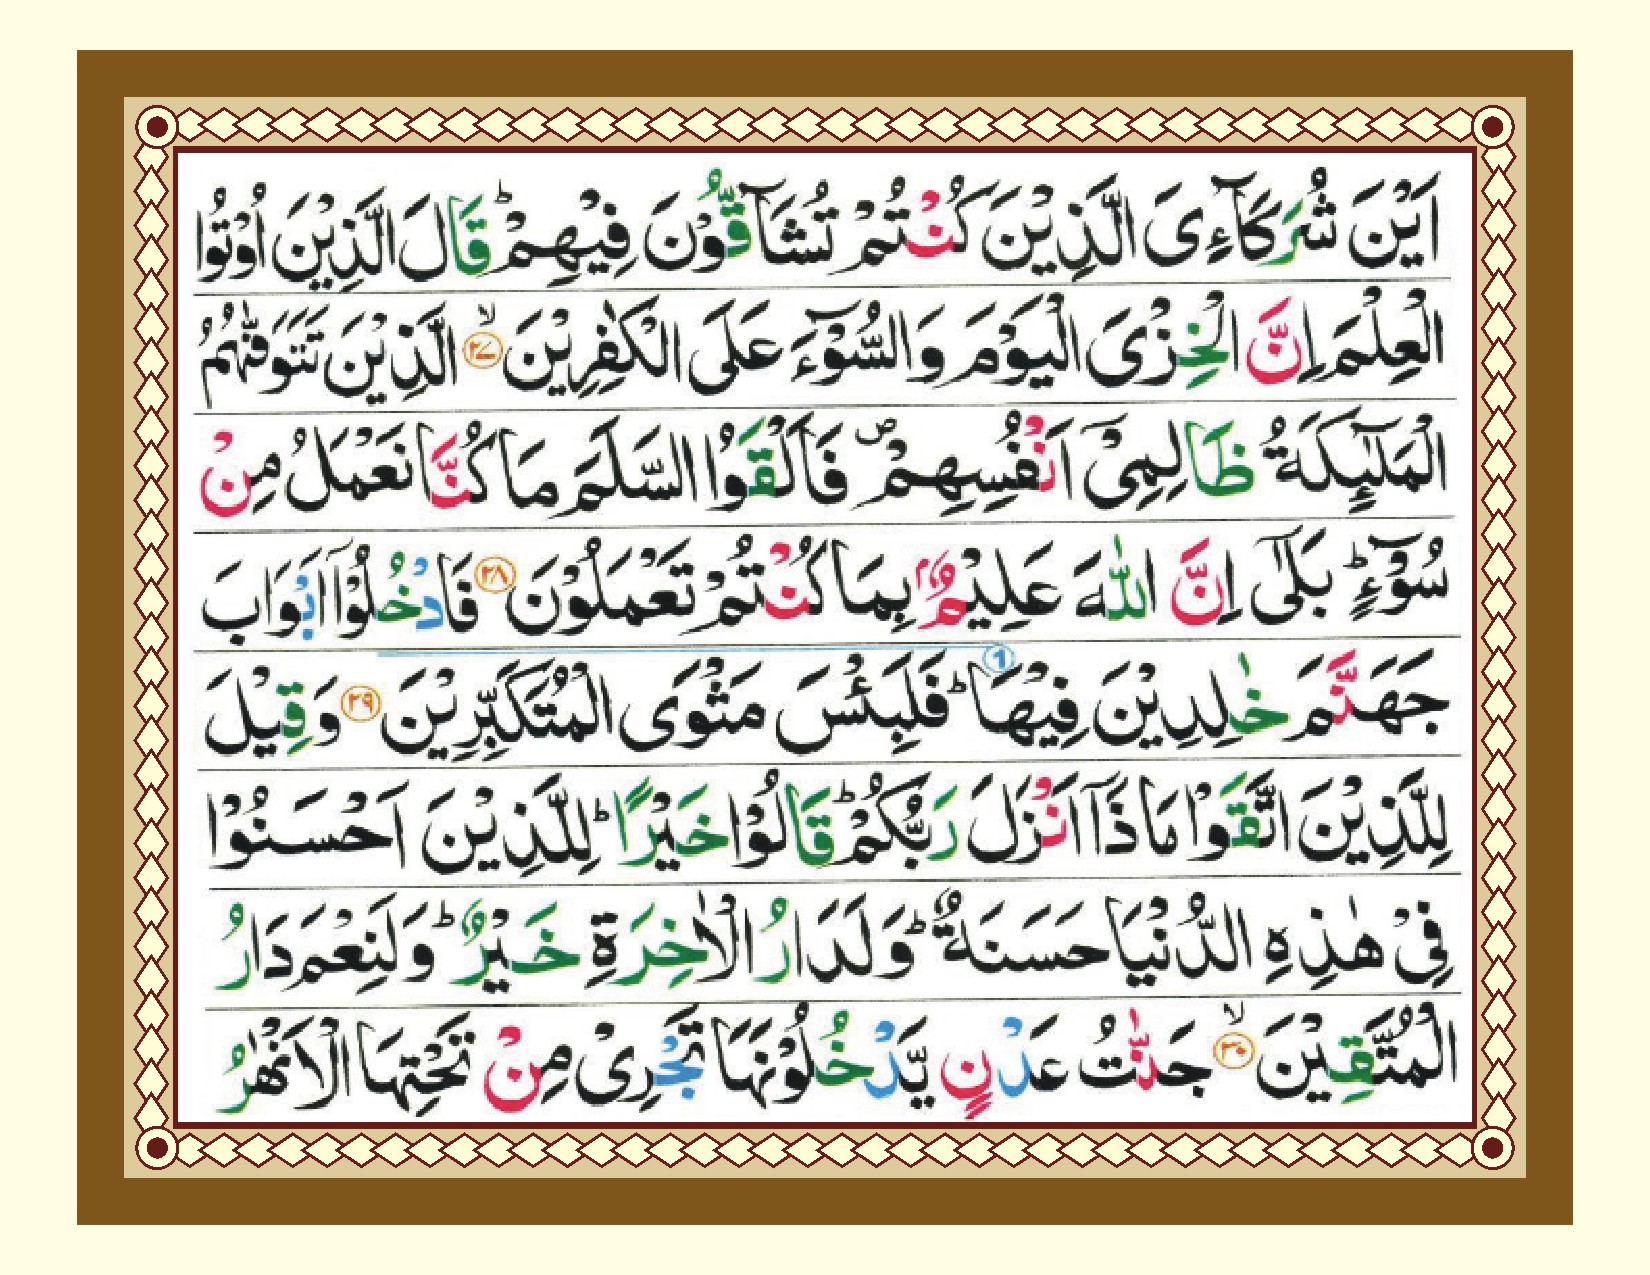 اَيْنَ شُرَكَآءِىَ الَّذِيْنَ كُنْتُمْ تُشَآقُّوْنَ فِيْهِمْ ؕ قَالَ الَّذِيْنَ اُوْتُوا
الْعِلْمَ اِنَّ الْخِزْىَ الْيَوْمَ وَالسُّوْٓءَ عَلَى الْكٰفِرِيْنَ ۙ ﴿۲۷﴾ الَّذِيْنَ تَتَوَفّٰٮهُمُ
الْمَلٰٓٮِٕكَةُ ظَالِمِىْۤ اَنْفُسِهِمْ ۖ فَاَلْقَوُا السَّلَمَ مَا كُنَّا نَعْمَلُ مِنْ
سُوْٓءٍ ؕ بَلٰٓى اِنَّ اللّٰهَ عَلِيْمٌۢ بِمَا كُنْتُمْ تَعْمَلُوْنَ ﴿۲۸﴾ فَادْخُلُوْۤا اَبْوَابَ
جَهَنَّمَ خٰلِدِيْنَ فِيْهَا ؕ 1 فَلَبِئْسَ مَثْوَى الْمُتَكَبِّرِيْنَ ﴿۲۹﴾ وَقِيْلَ
لِلَّذِيْنَ اتَّقَوْا مَاذَاۤ اَنْزَلَ رَبُّكُمْ ؕ قَالُوْا خَيْرًا ؕ لِلَّذِيْنَ اَحْسَنُوْا
فِىْ هٰذِهِ الدُّنْيَا حَسَنَةٌ ؕ وَلَدَارُ الْاٰخِرَةِ خَيْرٌ ؕ وَلَنِعْمَ دَارُ
الْمُتَّقِيْنَ ۙ ﴿۳۰﴾ جَنّٰتُ عَدْنٍ يَّدْخُلُوْنَهَا تَجْرِىْ مِنْ تَحْتِهَا الْاَنْهٰرُ